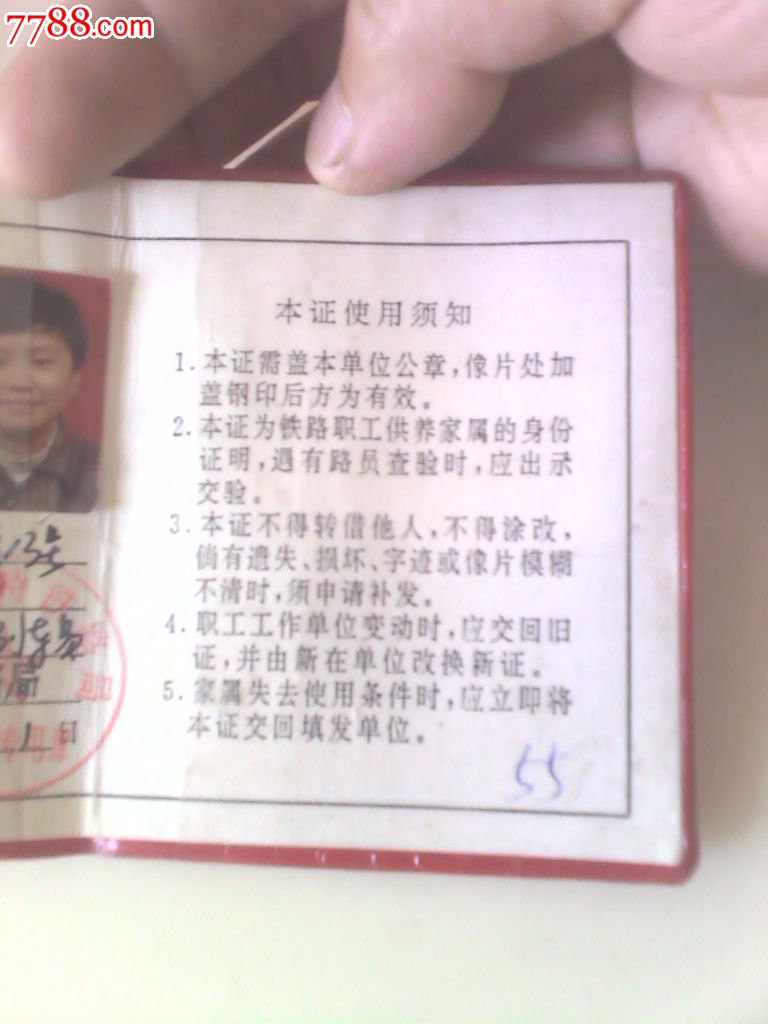 7788.com
本证使用须知
1. 本证需盖本单位公章，像片处加
盖钢印后方为有效。
2. 本证为铁路职工供养家属的身份
证明，遇有路员查验时，应出示
交验。
3. 本证不得转借他人，不得涂改，
倘有遗失、损坏、字迹或像片模糊
不清时，须申请补发。
4. 职工工作单位变动时，应交回旧
证，并由新在单位改换新证。
5. 家属失去使用条件时，应立即将
本证交回填发单位。
日
55